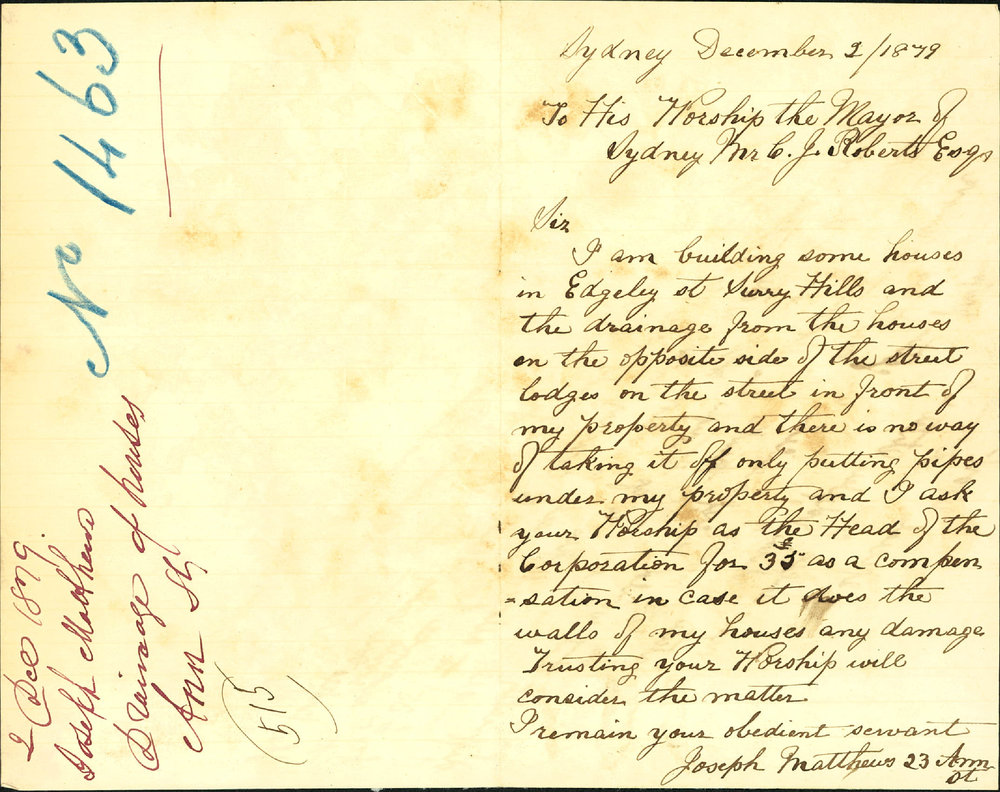 No 1463
2 Dec 1879.
Joseph Matthews
Drainage of houses
Ann St
(515)
Sydney December 2/1879
To His Worship the Mayor of
Sydney Mr C. J. Roberts Esqr
Sir
I am building some houses
in Edgeley st Surry Hills and
the drainage from the houses
on the opposite side of the street
lodges on the street in front of
my property and there is no way
of taking it off only putting pipes
under my property and I ask
your Worship as the Head of the
Corporation for 35 as a compen
-sation in case it does the
walls of my houses any damage
Trusting your Worship will
consider the matter
I remain your obedient servant
Joseph Matthews 23 Ann
st